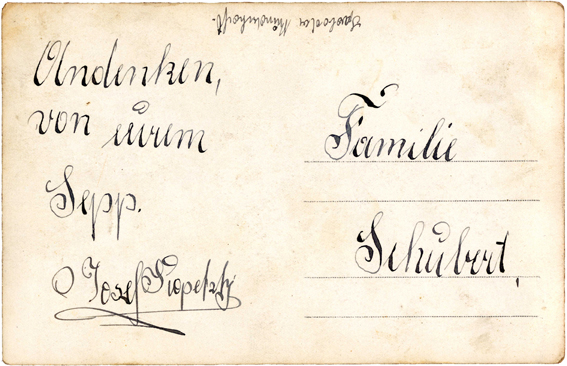 Andenken,
von eurem
Sepp.
Josef
Familie
Schubert,